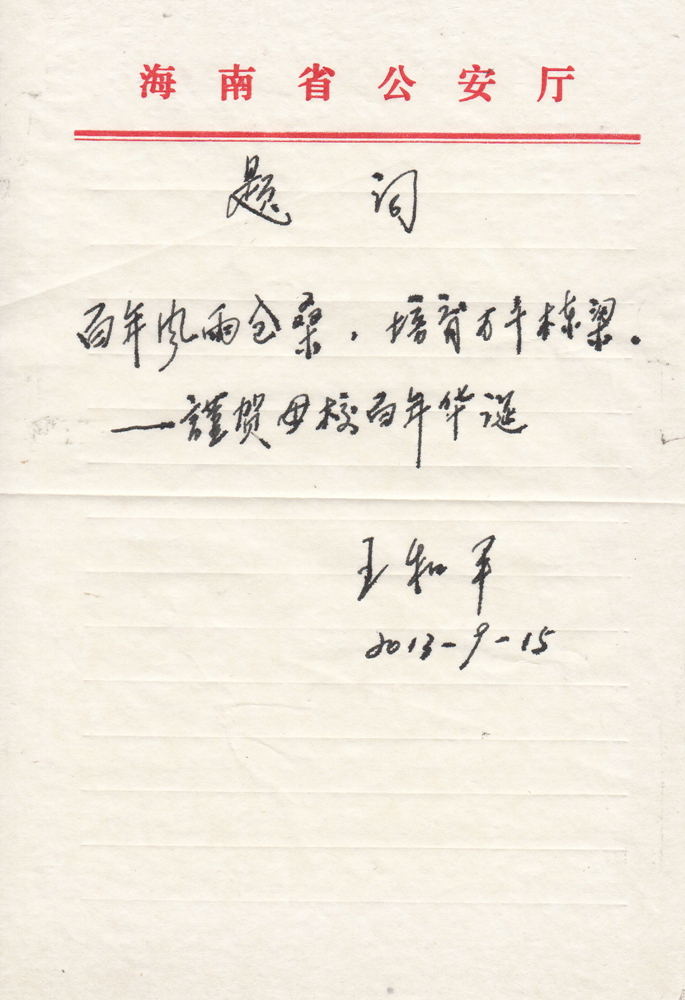 海南省公安厅
题 词
百年风雨仓桑，培育万千栋梁。
——謹贺母校百年华诞
王和平
2013-9-15